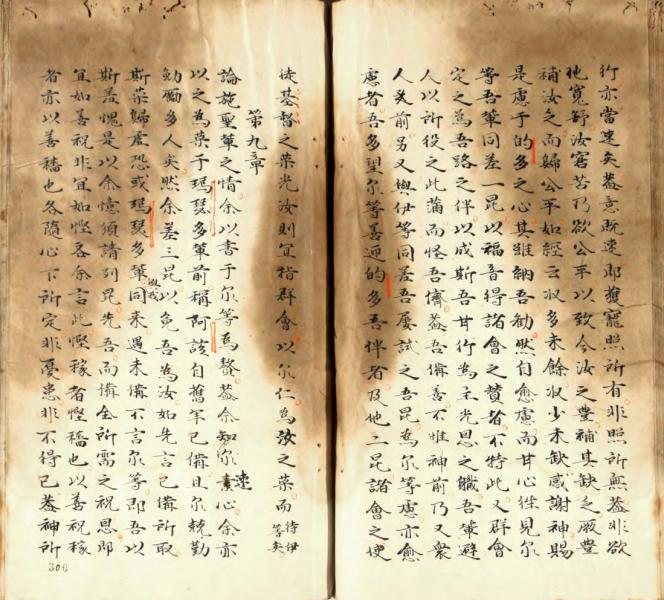 行亦當速矣蓋意既速即獲寵照所有非照所無蓋非欲
他寬舒汝窘苦乃欲公平以致今汝之豊補其缺之厥豊
補汝之而歸公平如經云收多未餘收少未缺感謝神賜
是慮于的多之心其雖納吾勸然自愈慮而甘心徃見尔
等吾輩同差一昆以福音得諸會之贊者不特此又群會
定之為吾路之伴以成斯吾甘行為主光恩之職吾輩避
人以所役之此蒲而怪吾儕蓋吾備善不惟神前乃又衆
人矣前另又與伊等同差吾屢試之吾昆為尔等慮亦愈
慮者吾多望尔等善逥的多吾伴者及他二昆諸會之使
徒基督之榮光汝則宜指群會以尔仁為汝之榮而待伊等矣
第九章
論施聖輩之情余以書于尔等為贅蓋余知尔速心余亦
以之為榮于瑪瑟多輩前稱阿該自舊年已備且尔兢勤
勉勵多人矣然余差三昆以免吾為汝如先言已備所取
斯榮歸虛恐或瑪瑟多輩同來遇未備不言尔等即吾以
斯羞愧是以余憶須請列昆先吾而備全所需之祝恩即
宜如善祝非宜如慳吝余言此慳稼者慳穡也以善祝稼
者亦以善穡也各隨心下所定非憂患非不得已蓋神所
306